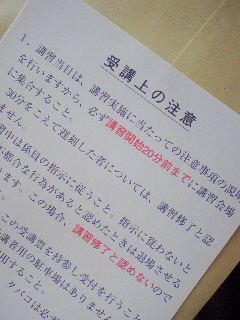 受講上の注意
1．講習当日は、講習実施に当たっての注意事項の説明
を行いますから、必ず講習開始20分前までに講習会場
に集合すること。
30分をこえて遅刻した者については、講習修了と認
ません。
習中は係員の指示に従うこと。指示に従わないと
不都合な行為があると認めたときは退場させる
ます。この場合、講習修了と認めないので
この受講票を持参し受付を行うこと
講者用の駐車場はありません
用すること。
タバコは必ず